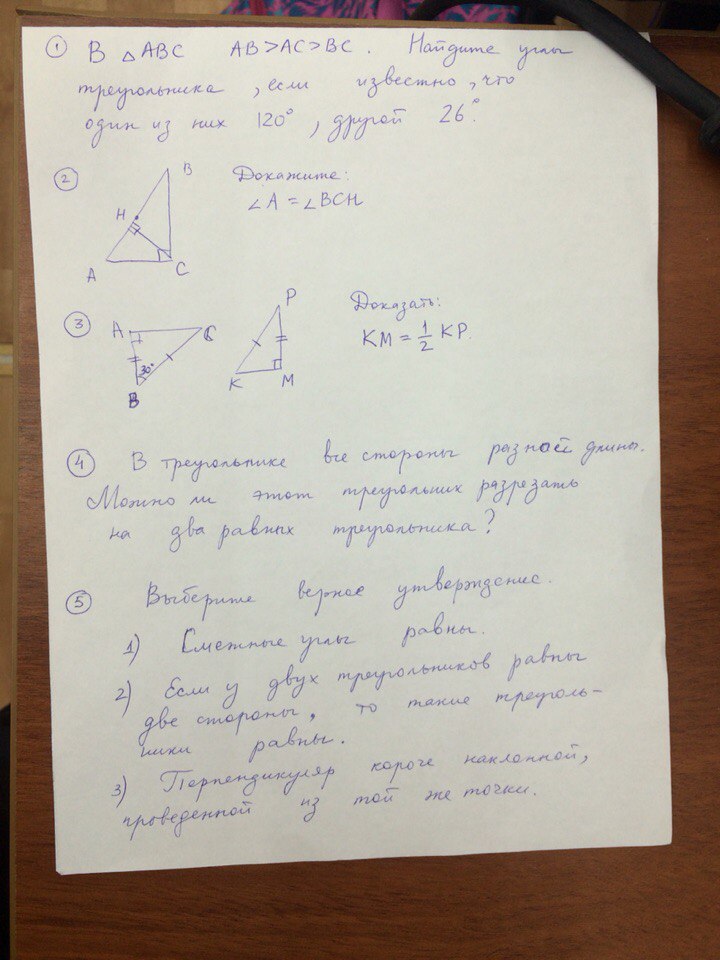 ① В △ABC AB>AC>BC. Найдите углы
треугольника, если известно, что
один из них 120°, другой 26°.
② Докажите:
∠A = ∠BCH
B
H
A
C
③ Доказать:
KM = 1/2 KP.
A
C
30°
B
P
K
M
④ В треугольнике все стороны разной длины.
Можно ли этот треугольник разрезать
на два равных треугольника?
⑤ Выберите верное утверждение.
1) Смежные углы равны.
2) Если у двух треугольников равны
две стороны, то такие треуголь-
ники равны.
3) Перпендикуляр короче наклонной,
проведенной из той же точки.